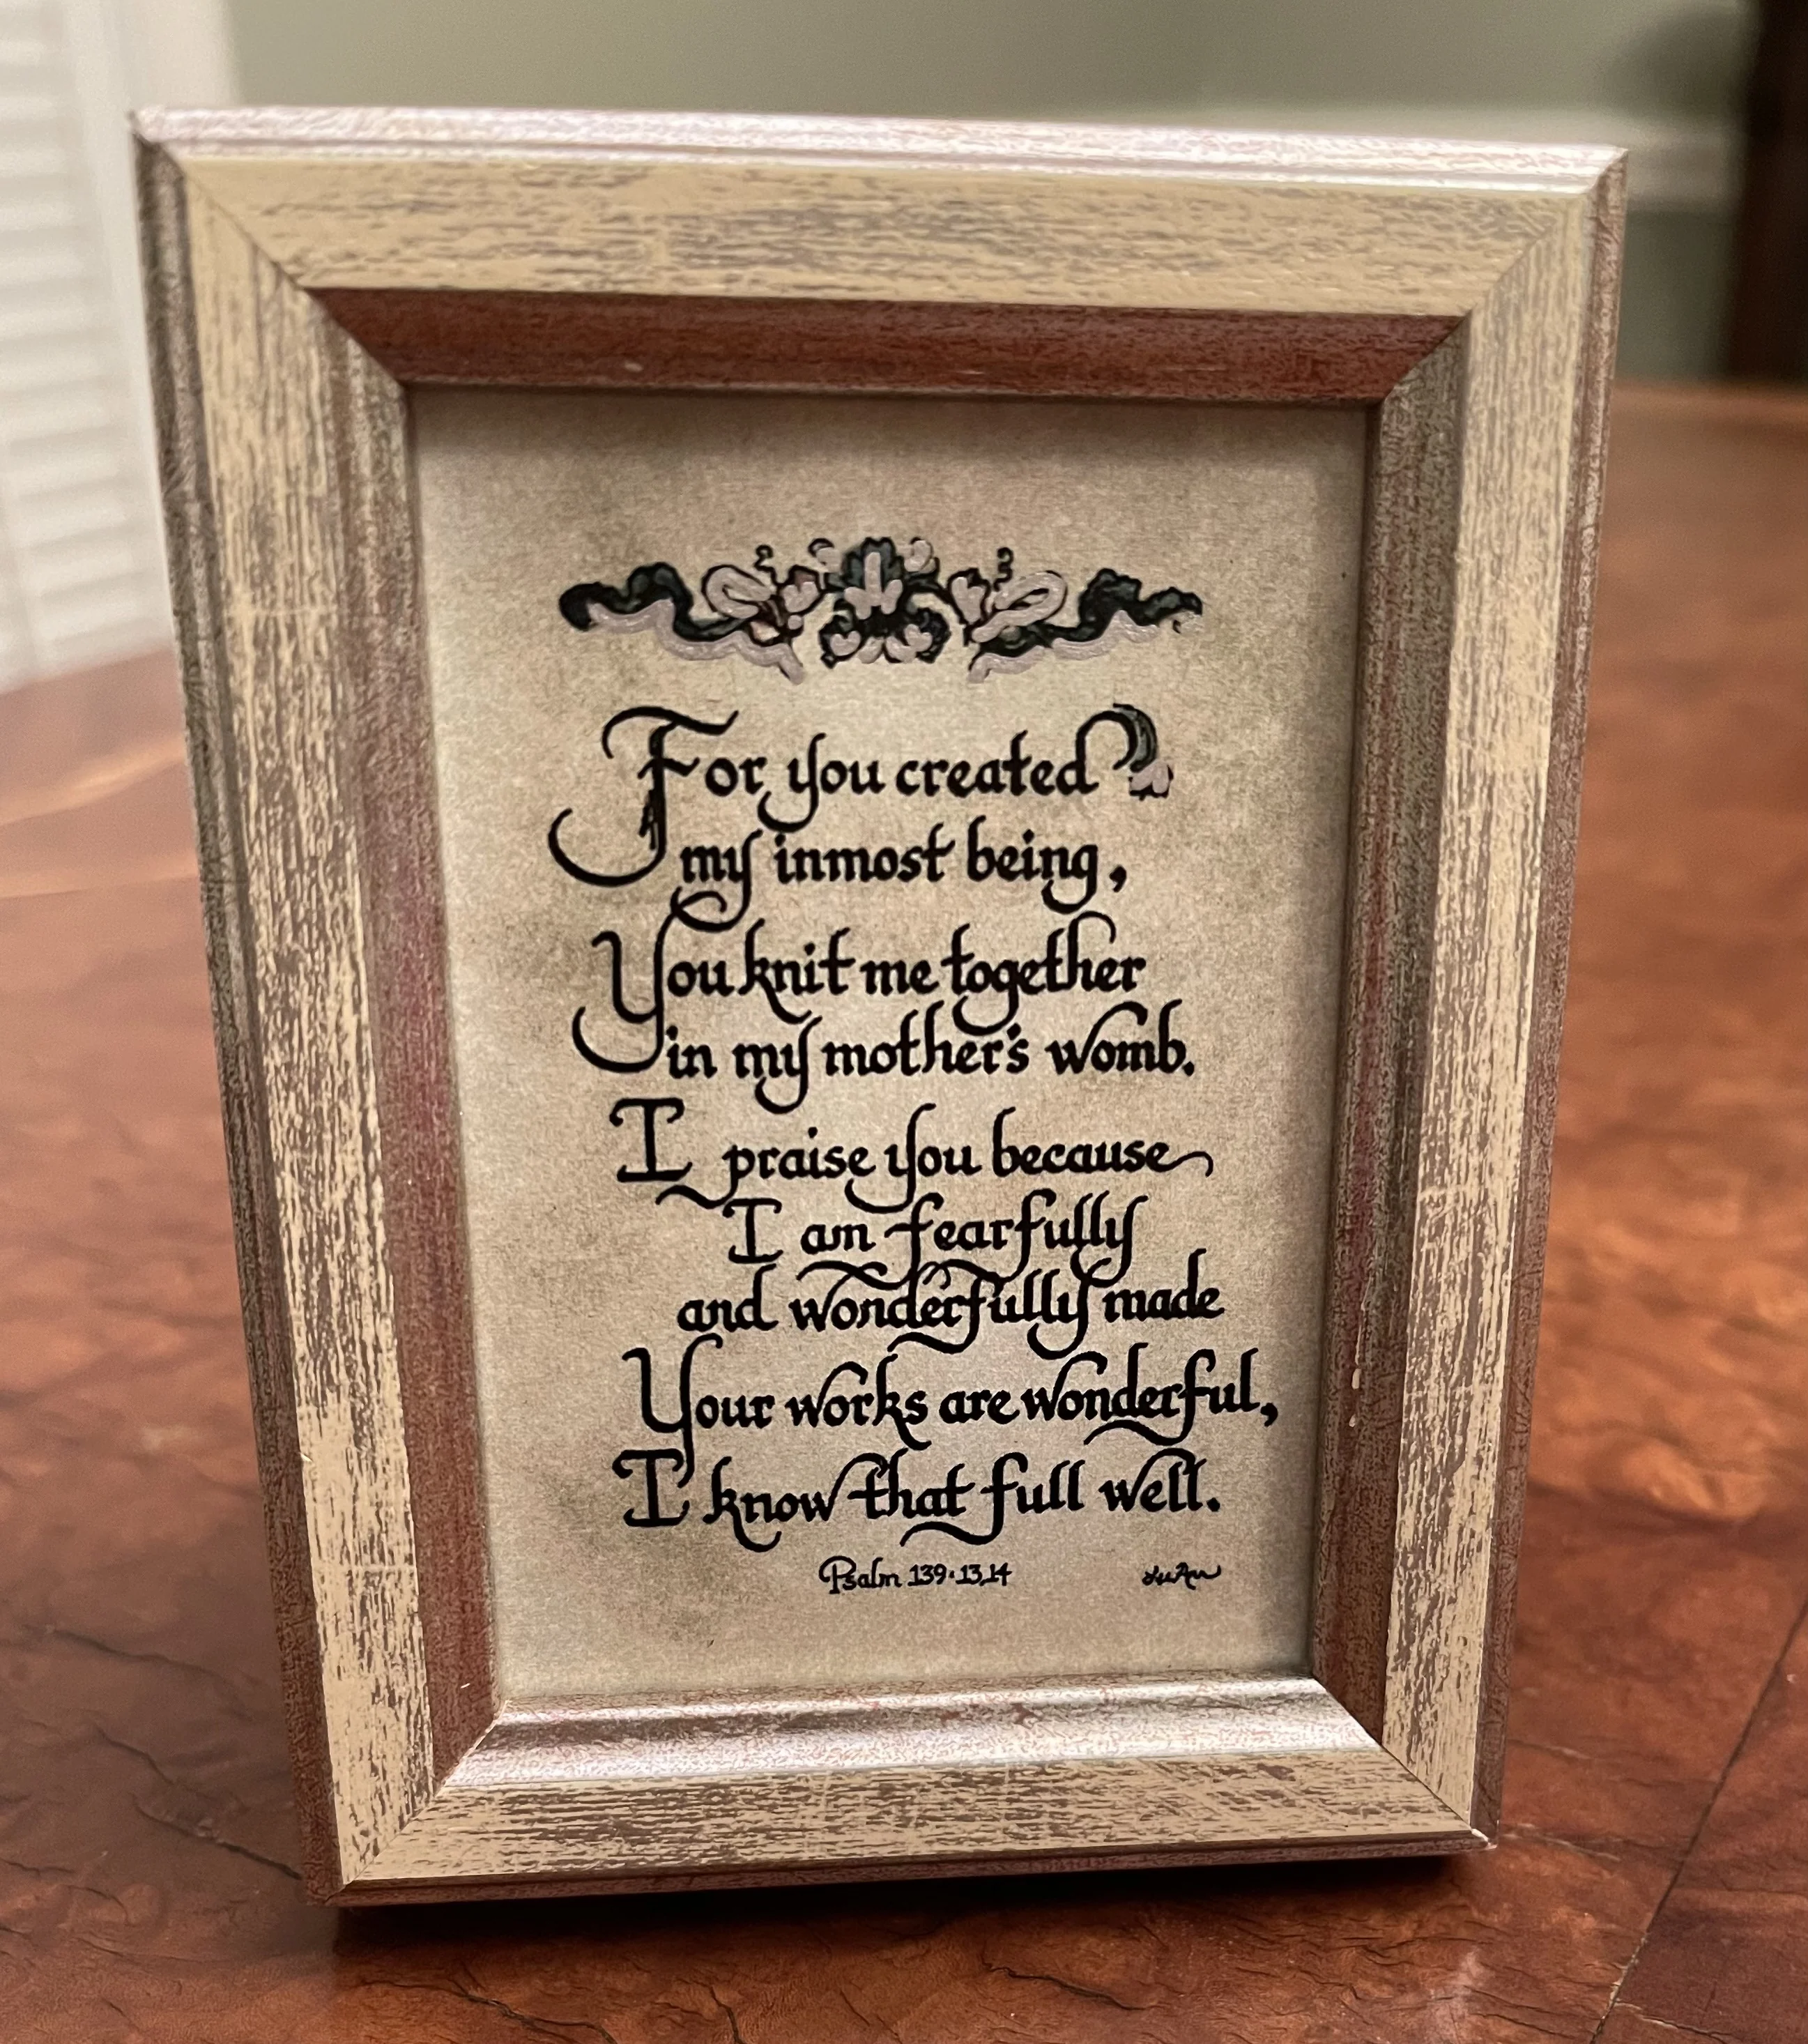 For you created
my inmost being,
You knit me together
in my mother's womb.
I praise you because
I am fearfully
and wonderfully made
Your works are wonderful,
I know that full well.
Psalm 139·13,14 LuAnn